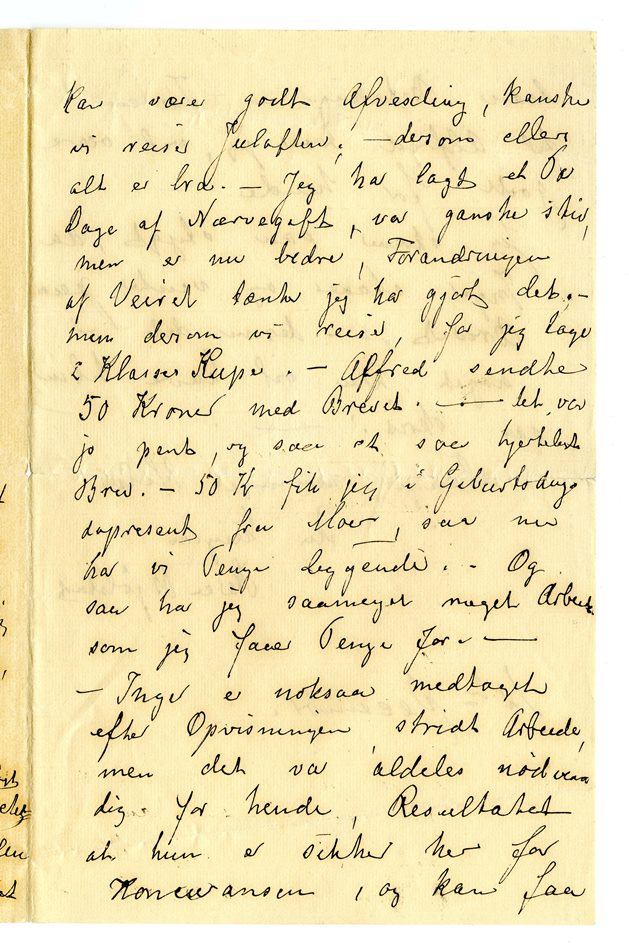 kan være godt Afvesling, kanske
vi reiser Juleaften; – dersom ellers
alt er bra. – Jeg har lagt et Par
Dage af Nærvegeft, var ganske stiv,
men er nu bedre, Forandringen
af Veiret tænker jeg har gjort det, –
men dersom vi reiser, får jeg tage
2 Klasses Kupe. – Alfred sendte
50 Kroner med Brevet. – det var
jo pent, og saa et saa hjerteligt
Brev. – 50 Kr fik jeg i Geburtsdags
dapresent fra Moer, saa nu
har vi Penge liggende. – Og
saa har jeg saameget meget Arbeide
som jeg faaer Penge for. –
– Inger er noksaa medtaget
efter Opvisningen, stridt Arbeide,
men det var aldeles nødven
dig for hende, Resultatet
at hun er sikker her for
Konkuransen, og kan faa